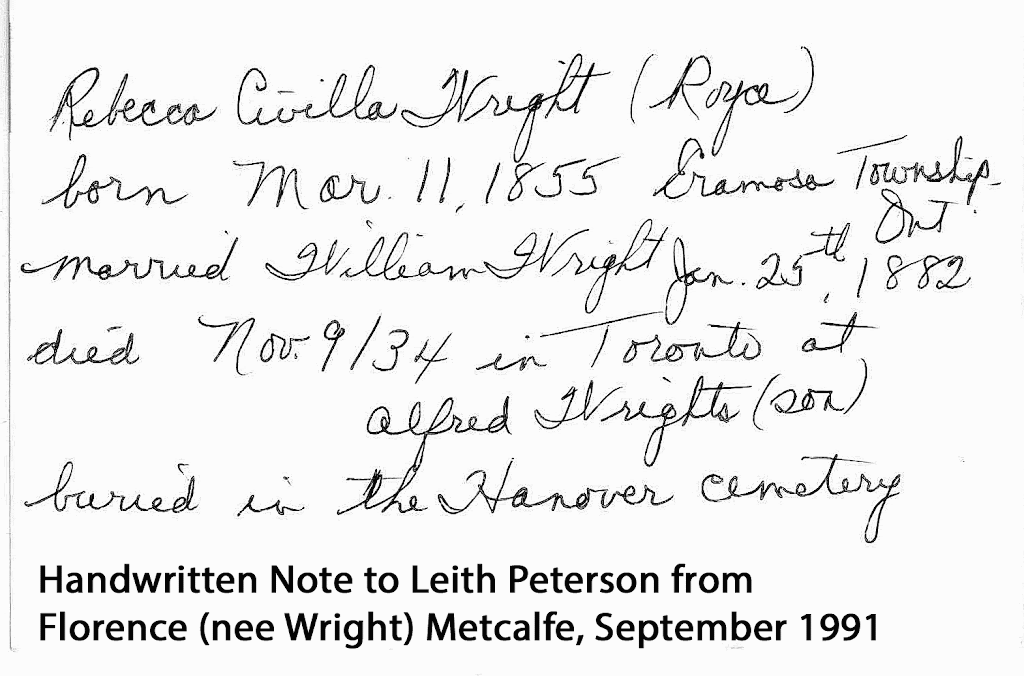 Rebecca Civilla Wright (Royce)
born Mar. 11, 1855 Eramosa Township
Ont.
married William Wright Jan. 25th, 1882
died Nov. 9/34 in Toronto at
Alfred Wrights (son)
buried in the Hanover cemetery
Handwritten Note to Leith Peterson from
Florence (nee Wright) Metcalfe, September 1991